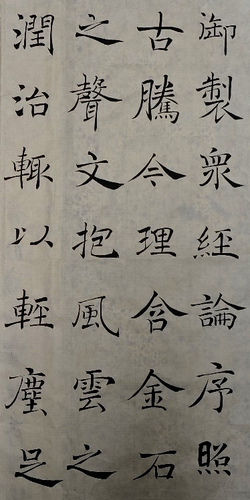 御製衆經論序照
古騰今理含金石
之聲文抱風雲之
潤治輙以輕塵足